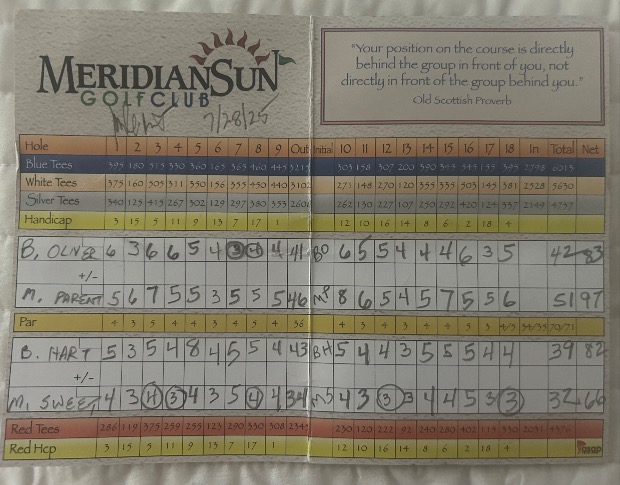 MERIDIANSUN
GOLFCLUB
7/28/25
"Your position on the course is directly
behind the group in front of you, not
directly in front of the group behind you."
Old Scottish Proverb
Hole 1 2 3 4 5 6 7 8 9 Out Initial 10 11 12 13 14 15 16 17 18 In Total Net
Blue Tees 395 180 515 330 360 165 365 460 445 3215 303 158 307 200 390 345 545 155 395 2798 6013
White Tees 375 160 505 311 350 156 355 450 440 3102 271 148 270 120 355 335 503 145 381 2528 5630
Silver Tees 340 125 415 267 302 129 297 380 353 2608 262 130 227 107 250 292 420 124 337 2149 4757
Handicap 3 15 5 11 9 13 7 17 1 12 10 16 14 8 6 2 18 4
B. OLNER 6 3 6 6 5 4 3 4 4 41 BO 6 5 5 4 4 4 6 3 5 42 83
+/-
M. PARENT 5 6 7 5 5 3 5 5 5 46 MP 8 6 5 4 5 7 5 5 6 51 97
Par 4 3 5 4 4 3 4 5 4 36 4 3 4 3 4 4 5 3 4/5 34/35 70/71
B. HART 5 3 5 4 8 4 5 5 4 43 BH 5 4 4 3 5 5 5 4 4 39 82
+/-
M. SWEET 4 3 4 3 4 3 5 4 4 34 MS 4 3 3 3 4 4 5 3 3 32 66
Red Tees 286 119 375 259 255 123 290 330 308 2345 230 120 222 92 240 280 402 113 330 2031 4376
Red Hcp 3 15 5 11 9 13 7 17 1 12 10 16 14 8 6 2 18 4